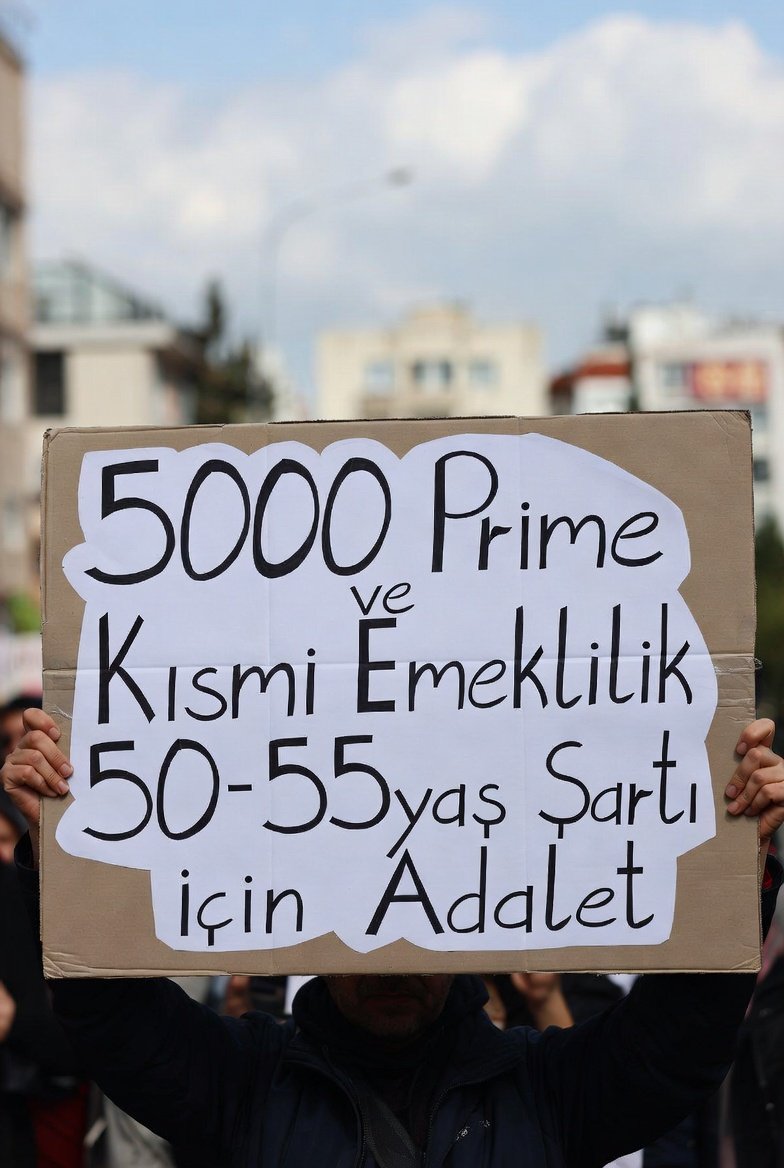 5000 Prime
ve
Kısmi Emeklilik
50-55 yaş Şartı
için Adalet